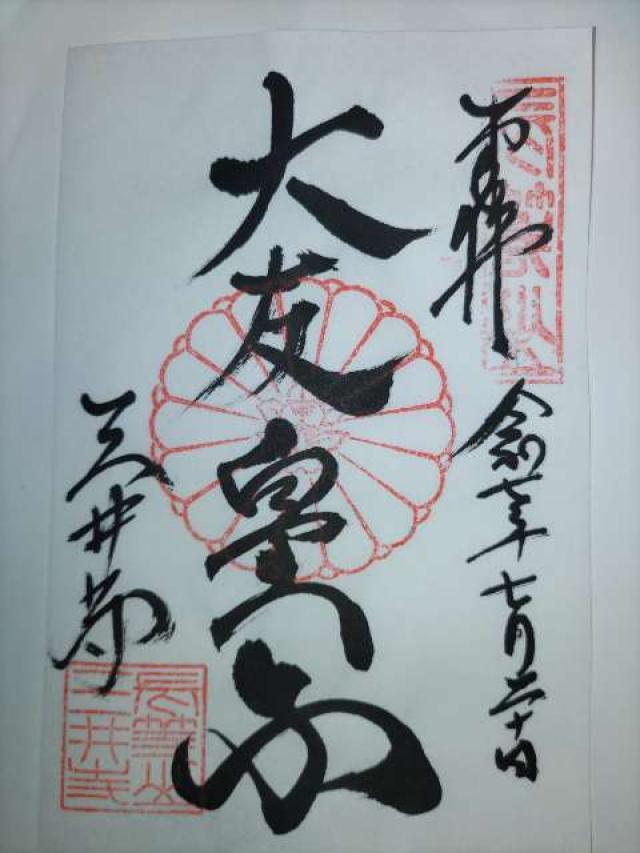 奉拝
令和七年七月二十日
大友皇子
三井寺
長等山
三井寺